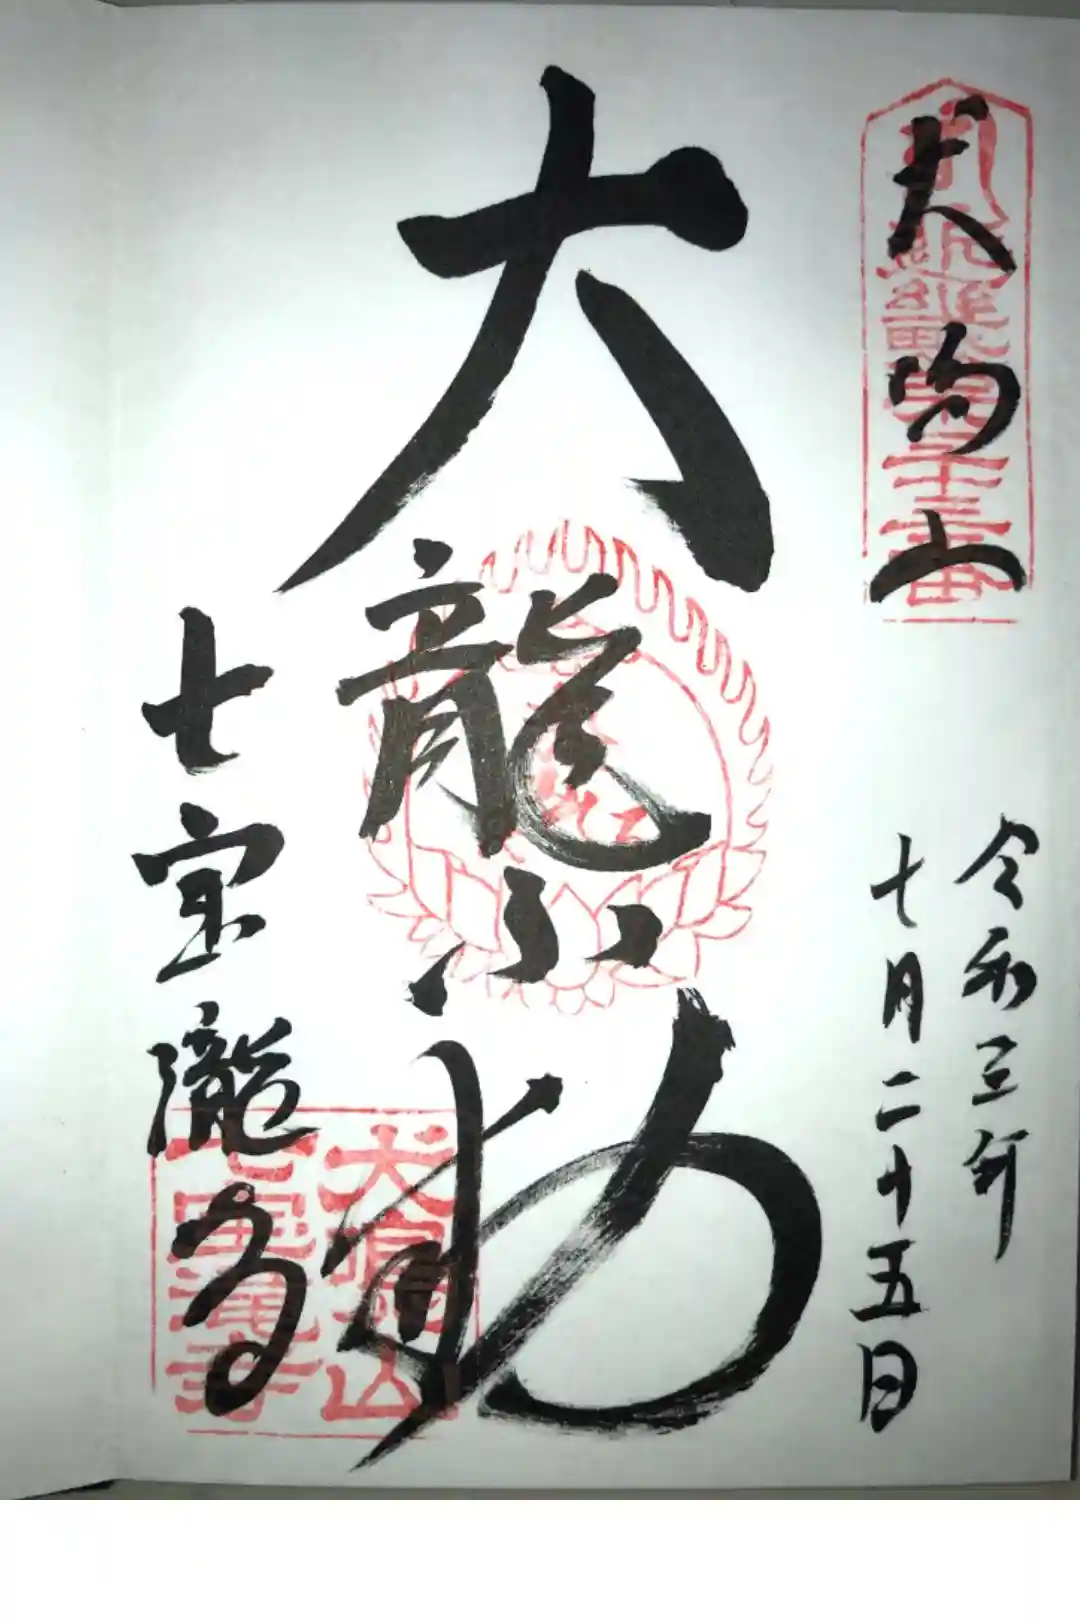 犬鳴山
令和三年
七月二十五日
大龍不動
七宝瀧寺
犬鳴山
七宝滝寺